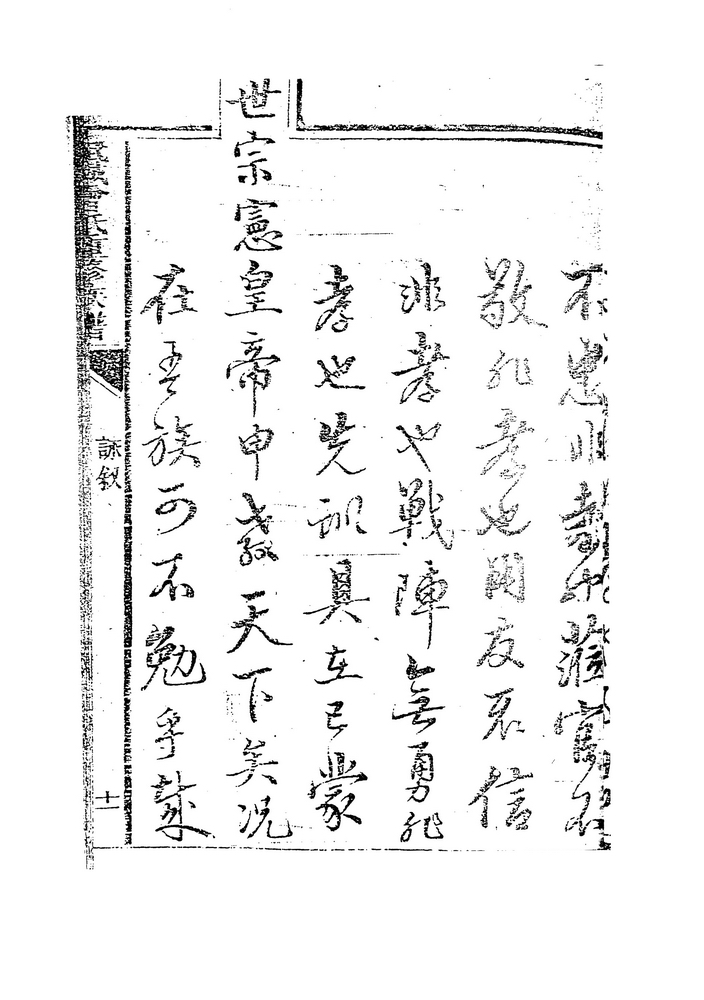 不忠非孝也蒞官不
敬非孝也朋友不信
非孝也戰陣無勇非
孝也先訓具在已蒙
世宗憲皇帝申教天下矣況
在吾族可不勉乎誠
族譜
詠敘
十一